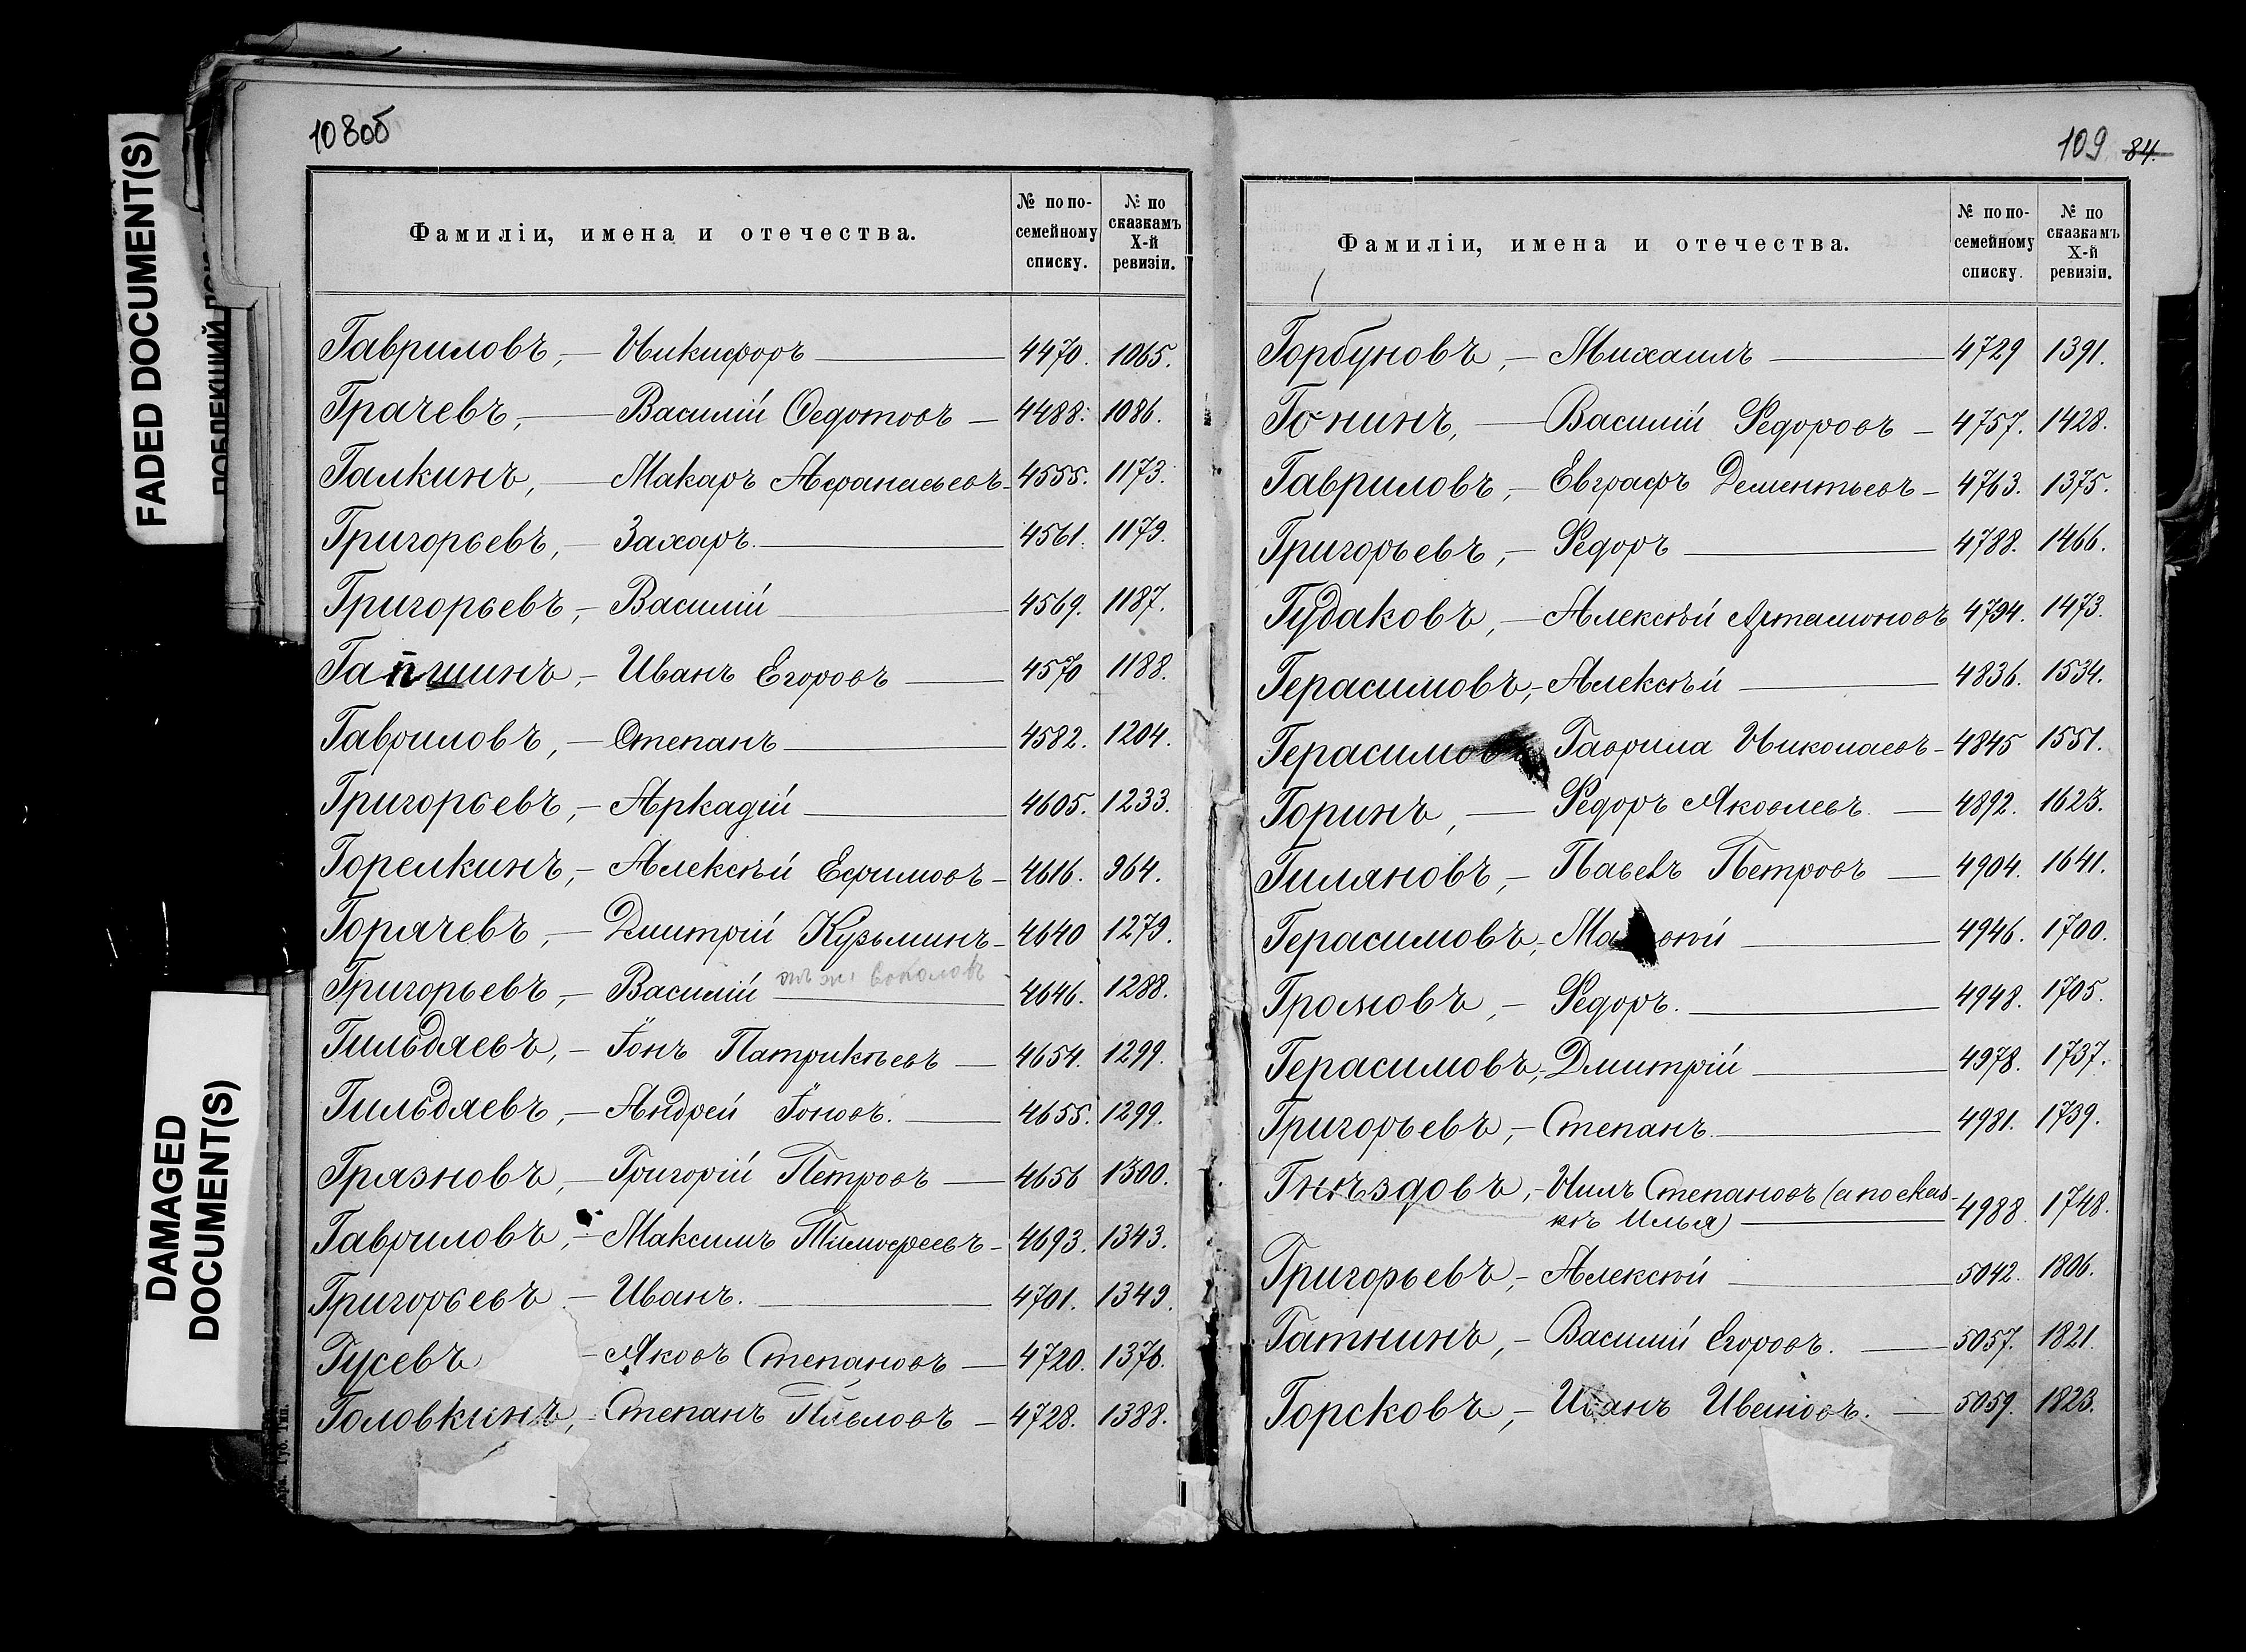 FADED DOCUMENT(S)
DAMAGED
DOCUMENT(S)
108об
Фамиліи, имена и отечества.
№ по по-
семейному
списку.
№ по
сказкамъ
X-й
ревизіи.
Гавриловъ, — Никифоръ — 4470. 1065.
Грачевъ, — Василій Ѳедотовъ — 4488. 1086.
Галкинъ, — Макаръ Афанасьевъ — 4555. 1173.
Григорьевъ, — Захаръ. — 4561. 1179.
Григорьевъ, — Василій — 4569. 1187.
Гапшинъ, — Иванъ Егоровъ — 4570 1188.
Гавриловъ, — Степанъ — 4582. 1204.
Григорьевъ, — Аркадій — 4605. 1233.
Горелкинъ, — Алексѣй Ефимовъ — 4616. 964.
Горячевъ, — Дмитрій Кузьминъ — 4640 1279.
Григорьевъ, — Василій онъ же Соколовъ — 4646. 1288.
Гильдяевъ, — Іонъ Патрикѣевъ — 4654. 1299.
Гильдяевъ, — Андрей Іоновъ. — 4655. 1299.
Грязновъ, — Григорій Петровъ — 4656 1300.
Гавриловъ, — Максимъ Тимофеевъ — 4693. 1343.
Григорьевъ — Иванъ. — 4701. 1349.
Гусевъ — Яковъ Степановъ — 4720. 1376.
Головкинъ, — Степанъ Павловъ — 4728. 1388.
109 84.
Фамиліи, имена и отечества.
№ по по-
семейному
списку.
№ по
сказкамъ
X-й
ревизіи.
Горбуновъ, — Михаилъ — 4729 1391.
Гонинъ, — Василій Федоровъ — 4757. 1428.
Гавриловъ, — Евграфъ Дементьевъ — 4763. 1375.
Григорьевъ, — Федоръ — 4788. 1466.
Гудаковъ, — Алексѣй Артамоновъ 4794. 1473.
Герасимовъ, — Алексѣй — 4836. 1534.
Герасимовъ Гаврила Николаевъ — 4845 1551.
Горинъ, — Федоръ Яковлевъ. — 4892. 1623.
Гиляновъ, — Павелъ Петровъ — 4904. 1641.
Герасимовъ, — 4946. 1700.
Громовъ, — Федоръ. — 4948. 1705.
Герасимовъ, — Дмитрій — 4978. 1737.
Григорьевъ, — Степанъ. — 4981. 1739.
Гнѣздовъ, — Нилъ Степановъ (а по сказ-
кѣ Илья) — 4988 1748.
Григорьевъ, — Алексѣй — 5042. 1806.
Гатнинъ, — Василій Егоровъ. — 5057. 1821.
Горсковъ, — Иванъ Ивановъ. — 5059. 1823.